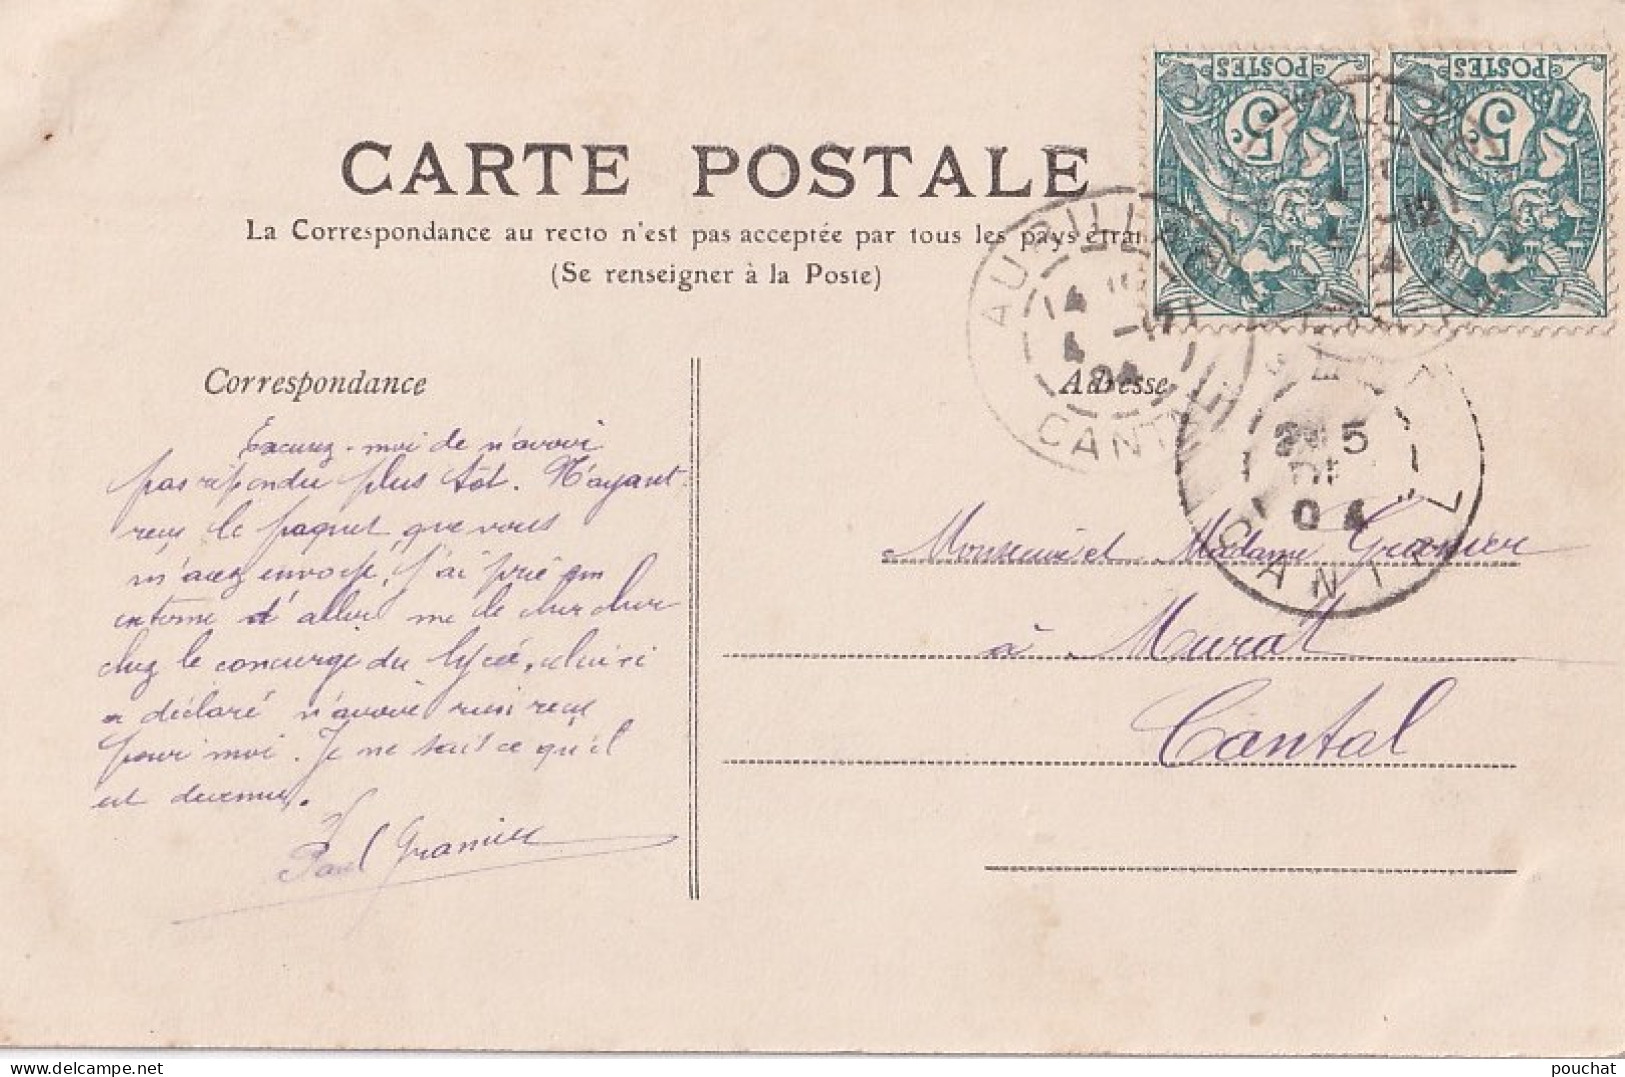 POSTES
5c.
POSTES
5c.
CARTE POSTALE
La Correspondance au recto n'est pas acceptée par tous les pays étran
(Se renseigner à la Poste)
AURILLAC
4 -12
04
CANTAL
Correspondance
Adresse
5
04
CANTAL
Excusez-moi de n'avoir
pas répondu plus tôt. N'ayant
reçu le paquet, que vous
m'avez envoyé, j'ai prié un
interne d'aller me le chercher
chez le concierge du lycée, celui-ci
a déclaré n'avoir rien reçu
pour moi. Je ne sais ce qu'il
est devenu.
Paul Granier
Monsieur et Madame Granier
à Murat
Cantal
pouchat